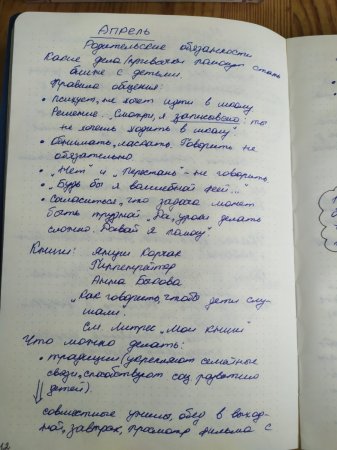 АПРЕЛЬ
Родительские обязанности
Какие дела/привычки помогут стать
ближе с детьми
Правила общения:
• психует, не хочет идти в школу
Решение. "Смотри, я записываю: ты
не хочешь ходить в школу"
• Обнимать, ласкать. Говорить не
обязательно
• "Нет" и "Перестань" - не говорить
• "Будь бы я волшебной феей..."
• Согласиться, что задача может
быть трудной "Да, уроки делать
сложно. Давай я помогу"
Книги: Януш Корчак
Гиппенрейтер
Анна Быкова
"Как говорить, чтобы дети слу-
шали.
См Литрес "Мои книги"
Что можно делать:
• традиции (укрепляют семейные
связи, способствуют соц развитию
детей).
совместные ужины, обед в выход-
ной, завтрак, просмотр фильма с
12